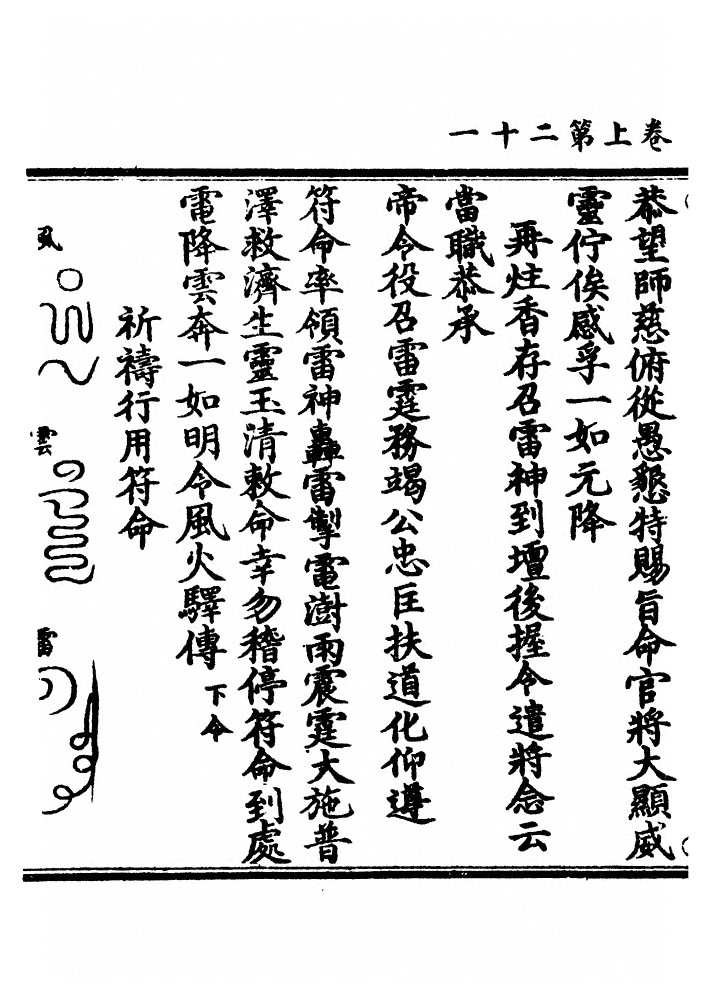 卷上第二十一
恭望師慈俯從愚懇特賜旨命官將大顯威
靈佇俟感孚一如元降
再炷香存召雷神到壇後握令遣將念云
當職恭承
帝令役召雷霆務竭公忠匡扶道化仰遵
符命率領雷神轟雷掣電澍雨震霆大施普
澤救濟生靈玉清敕命幸勿稽停符命到處
電降雲奔一如明令風火驛傳下令
祈禱行用符命
風
雲
雷